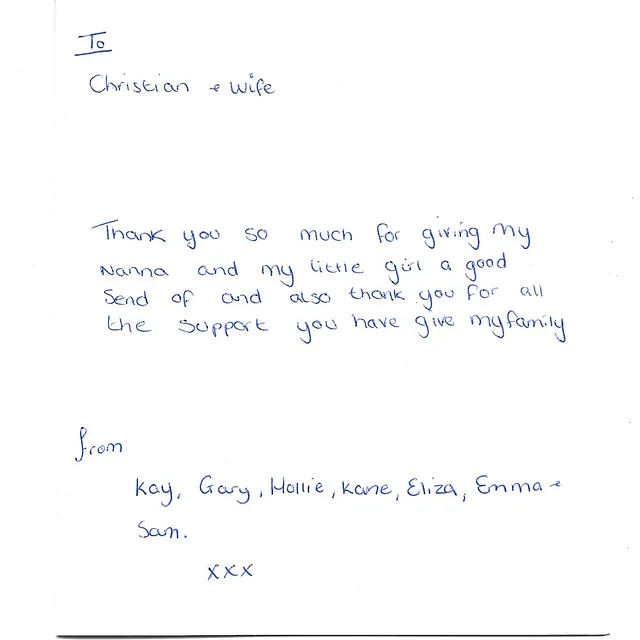 To
Christian & Wife
Thank you so much for giving my
Nanna and my little girl a good
Send of and also thank you for all
the support you have give my family
from
Kay, Gary, Hollie, Kane, Eliza, Emma &
Sam.
xxx